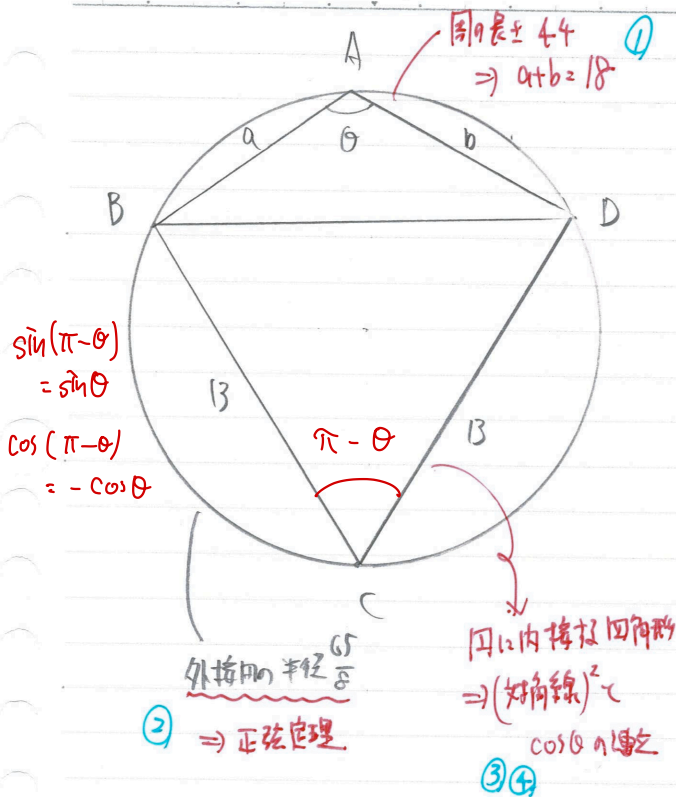 周の長さ 44
⇒ a+b=18
①
A
a
θ
b
B
D
sin(π-θ)
=sinθ
cos(π-θ)
=-cosθ
13
13
π-θ
C
外接円の半径 65/8
② ⇒ 正弦定理
円に内接する四角形
⇒(対角線)²と
cosθの連立
③④